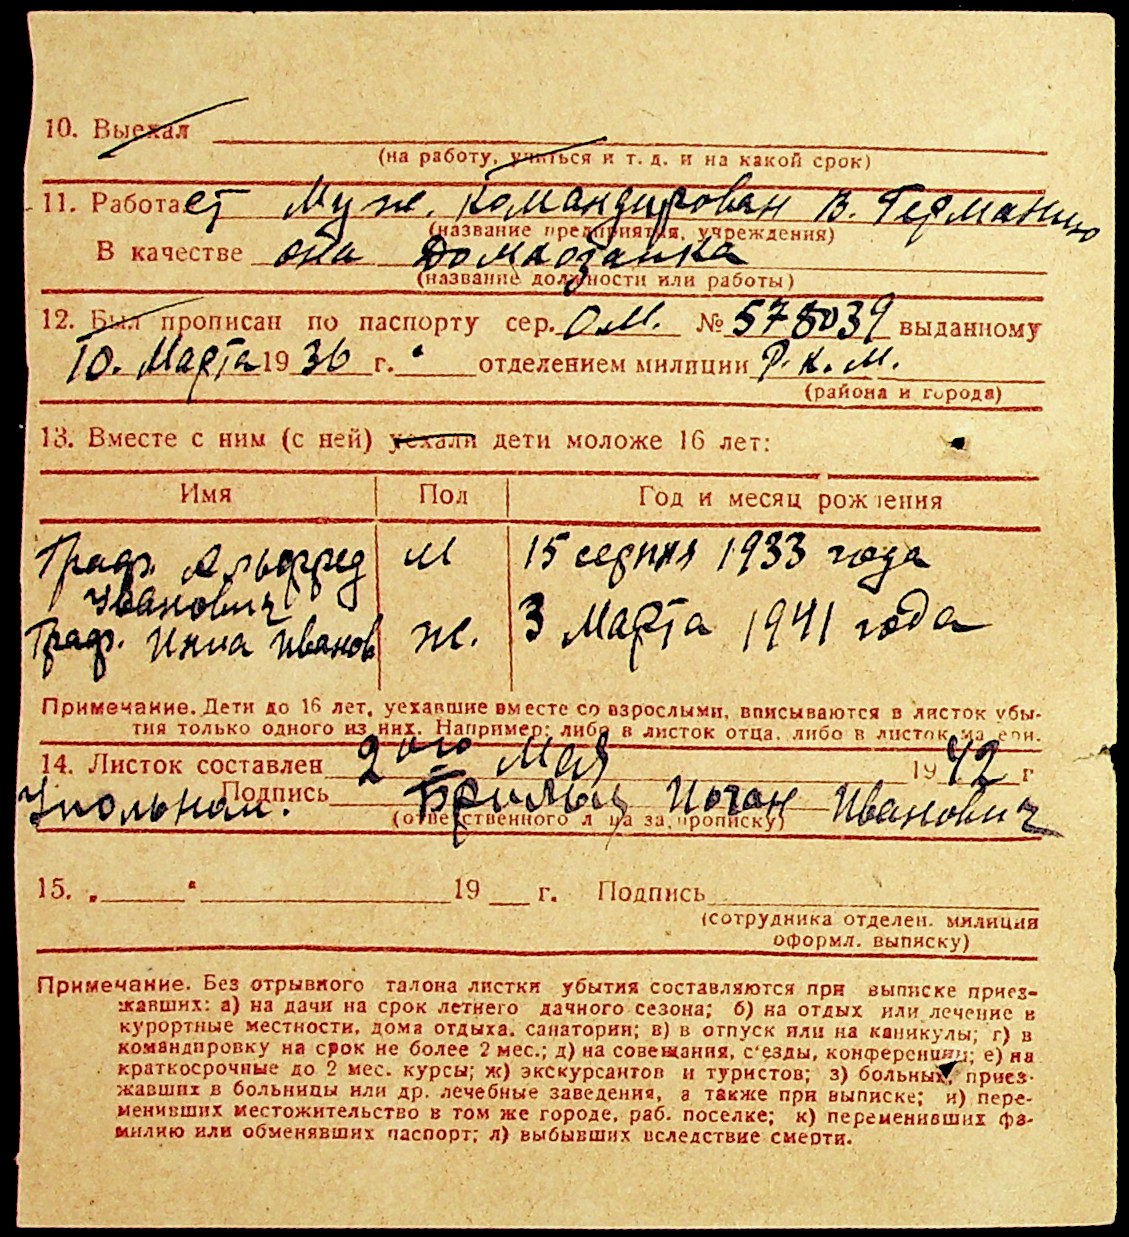 10. Выехал
(на работу, учиться и т. д. и на какой срок)
11. Работает Муж. командирован в. Германию
(название предприятия, учреждения)
В качестве она домхозяйка
(название должности или работы)
12. Был прописан по паспорту сер. О.М. № 578039 выданному
10. Марта 1936 г. отделением милиции Р.К.М.
(района и города)
13. Вместе с ним (с ней) уехали дети моложе 16 лет:
Имя Пол Год и месяц рождения
Граф. Альфред М 15 серпня 1933 года
Иванович
Граф. Инна Иванов Ж. 3 Марта 1941 года
Примечание. Дети до 16 лет, уехавшие вместе со взрослыми, вписываются в листок убы-
тия только одного из них. Например: либо в листок отца, либо в листок матери.
14. Листок составлен 2ого Мая 1942 г
Упольном. Подпись Иоган Иванович
(ответственного лица за прописку)
15. „ “ 19 г. Подпись
(сотрудника отделен. милиции
оформл. выписку)
Примечание. Без отрывного талона листки убытия составляются при выписке приез-
жавших: а) на дачи на срок летнего дачного сезона; б) на отдых или лечение в
курортные местности, дома отдыха, санатории; в) в отпуск или на каникулы; г) в
командировку на срок не более 2 мес.; д) на совещания, с'езды, конференции; е) на
краткосрочные до 2 мес. курсы; ж) экскурсантов и туристов; з) больных, приез-
жавших в больницы или др. лечебные заведения, а также при выписке; и) пере-
менивших местожительство в том же городе, раб. поселке; к) переменивших фа-
милию или обменявших паспорт; л) выбывших вследствие смерти.